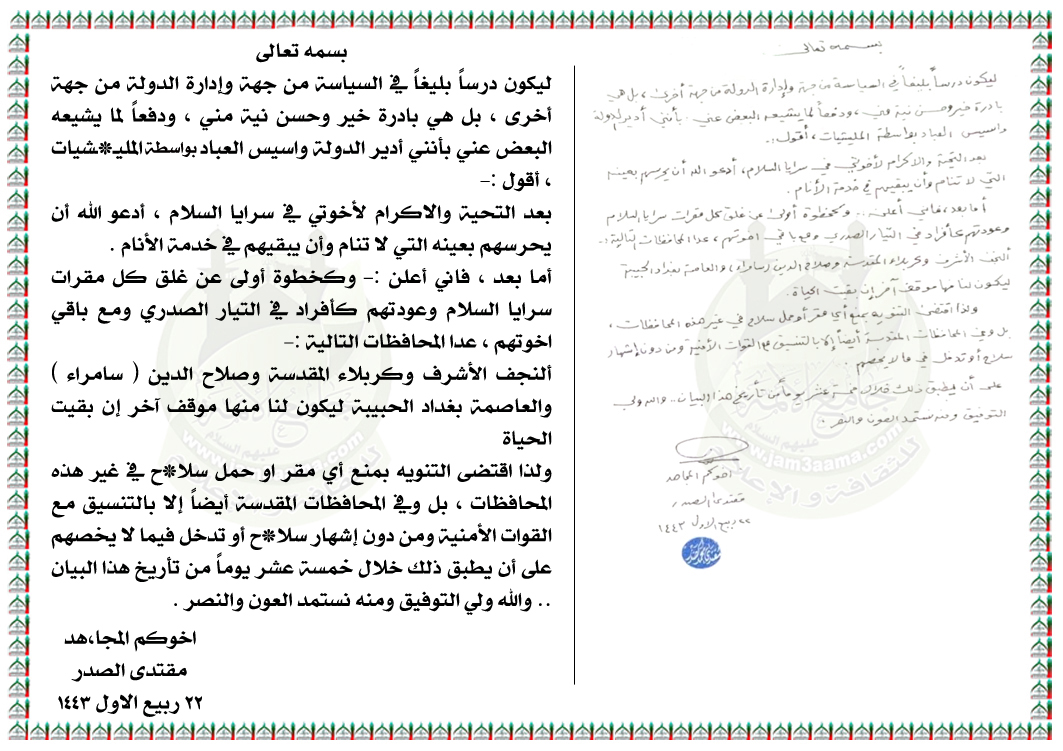 بسمه تعالى
ليكون درساً بليغاً في السياسة من جهة وإدارة الدولة من جهة
أخرى ، بل هي بادرة خير وحسن نية مني ، ودفعاً لما يشيعه
البعض عني بأنني أدير الدولة واسيس العباد بواسطة المليـ*ـشيات
، أقول :-
بعد التحية والاكرام لأخوتي في سرايا السلام ، أدعو الله أن
يحرسهم بعينه التي لا تنام وأن يبقيهم في خدمة الأنام .
أما بعد ، فاني أعلن :- وكخطوة أولى عن غلق كل مقرات
سرايا السلام وعودتهم كأفراد في التيار الصدري ومع باقي
اخوتهم ، عدا المحافظات التالية :-
ألنجف الأشرف وكربلاء المقدسة وصلاح الدين ( سامراء )
والعاصمة بغداد الحبيبة ليكون لنا منها موقف آخر إن بقيت
الحياة
ولذا اقتضى التنويه بمنع أي مقر او حمل سلا*ح في غير هذه
المحافظات ، بل وفي المحافظات المقدسة أيضاً إلا بالتنسيق مع
القوات الأمنية ومن دون إشهار سلا*ح أو تدخل فيما لا يخصهم
على أن يطبق ذلك خلال خمسة عشر يوماً من تأريخ هذا البيان
.. والله ولي التوفيق ومنه نستمد العون والنصر .
اخوكم المجا،هد
مقتدى الصدر
٢٢ ربيع الاول ١٤٤٣
بسمه تعالى
ليكون درساً بليغاً في السياسة من جهة وإدارة الدولة من جهة أخرى ، بل هي
بادرة خير وحسن نية مني ، ودفعاً لما يشيعه البعض عني بأنني أدير الدولة
واسيس العباد بواسطة المليشيات ، أقول :-
بعد التحية والاكرام لأخوتي في سرايا السلام ، أدعو الله أن يحرسهم بعينه
التي لا تنام وأن يبقيهم في خدمة الأنام .
أما بعد ، فاني أعلن .. وكخطوة أولى عن غلق كل مقرات سرايا السلام
وعودتهم كأفراد في التيار الصدري ومع باقي اخوتهم ، عدا المحافظات التالية :-
ألنجف الأشرف وكربلاء المقدسة وصلاح الدين (سامراء) والعاصمة بغداد الحبيبة
ليكون لنا منها موقف آخر إن بقيت الحياة .
ولذا اقتضى التنويه بمنع أي مقر أو حمل سلاح في غير هذه المحافظات ،
بل وفي المحافظات المقدسة أيضاً إلا بالتنسيق مع القوات الأمنية ومن دون إشهار
سلاح أو تدخل في ما لا يخصهم
على أن يطبق ذلك خلال خمسة عشر يوماً من تأريخ هذا البيان .. والله ولي
التوفيق ومنه نستمد العون والنصر .
اخوكم المجاهد
مقتدى الصدر
٢٢ ربيع الاول ١٤٤٣
www.jam3aama.com
للثقافة والإعلام